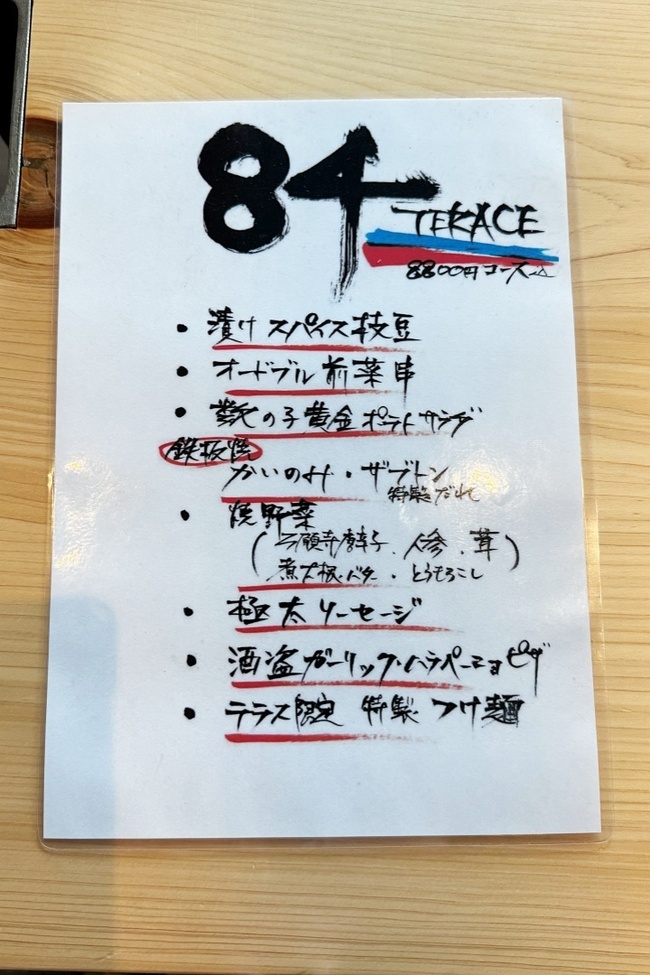 84
TERACE
8800円コース
・漬けスパイス枝豆
・オードブル前菜串
・数の子黄金ポテトサラダ
鉄板焼
かいのみ・ザブトン
特製だれ
・焼野菜
(万願寺唐辛子・人参・茸)
煮大根バター・とうもろこし
・極太ソーセージ
・酒盗ガーリック・ハラペーニョピザ
・テラス限定 特製つけ麺